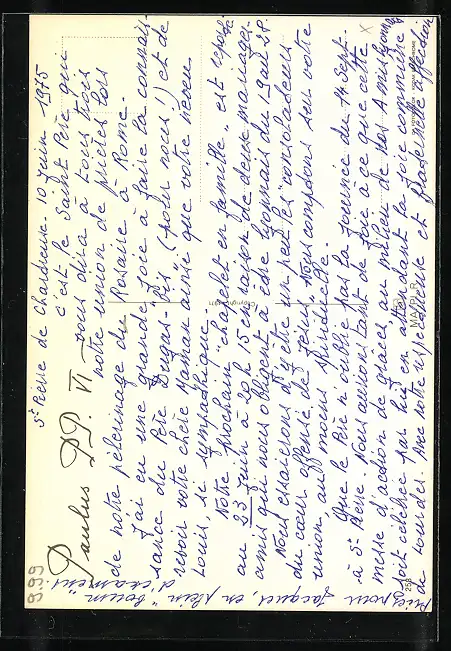 St Pierre de Chartreuse. 10 Juin 1975
Paulus PP. VI
c'est le Saint Père qui
vous dira à tous trois
notre union de prières lors
de notre pèlerinage du Rosaire à Rome.
J'ai eu une grande joie à faire la connais-
sance du Père Dugas-Vis (pour nous!) et de
revoir votre chère Maman ainsi que votre neveu
Louis, si sympathique.
Notre prochain "chapelet en famille" est reporté
au 23 Juin à 20 h 15 en raison de deux mariages
amis qui nous obligent à être Lyonnais du 19 au 28.
Nous essaierons d'y être un peu les "consolateurs
du cœur offensé de Jésus". Nous comptons sur votre
union, au moins spirituelle.
Que le Père n'oublie pas la journée du 14 Sept.
à St Pierre. Nous aurions tant de joie à ce que cette
messe d'action de grâces au milieu de nos
soit célébrée par lui, en attendant la joie commune
de Lourdes. Avec votre respectueuse et fraternelle affection
priez pour Jacques, en plein "boum"
d'examens!
Copyright 1971
258